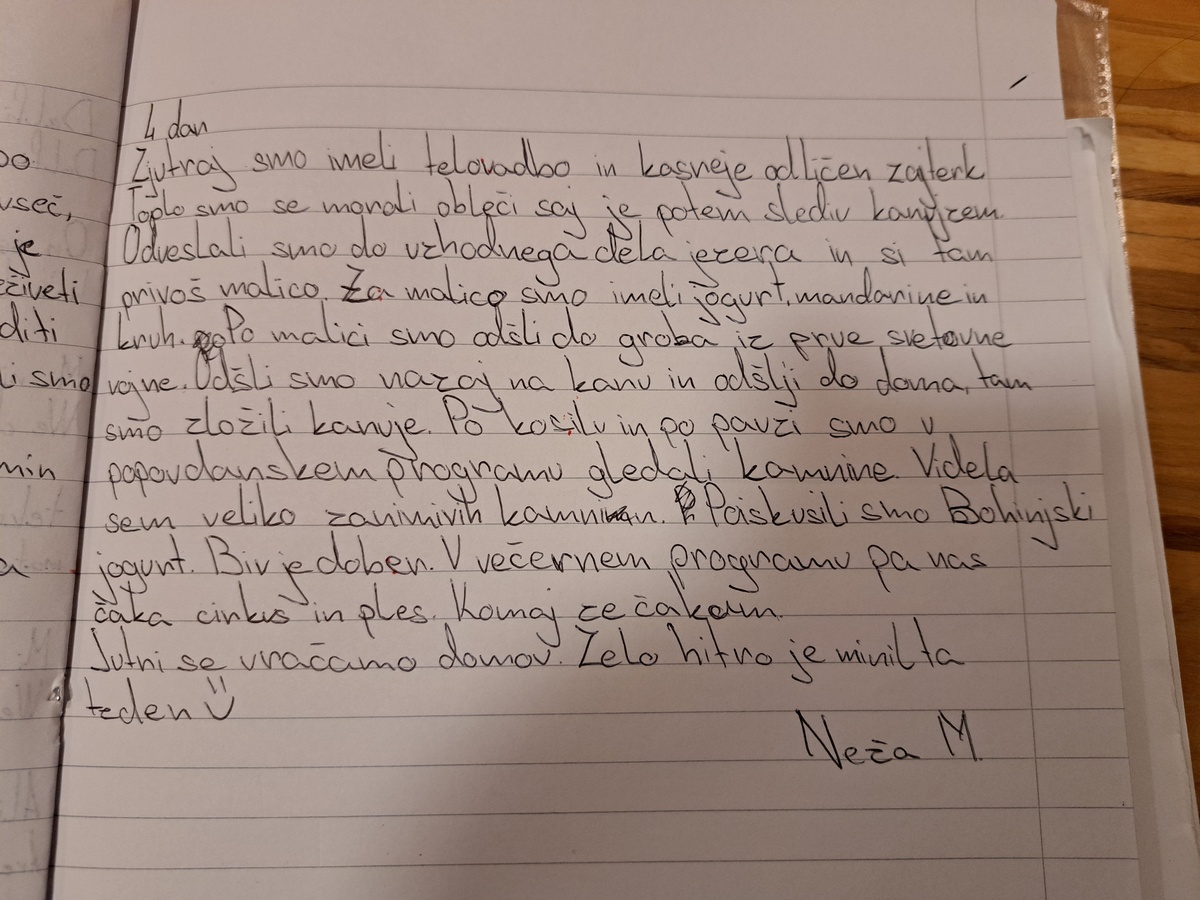 4 dan
Zjutraj smo imeli telovadbo in kasneje odličen zajterk
Toplo smo se morali obleči saj je potem slediv kanyzem.
Odveslali smo do vzhodnega dela jezera in si tam
privoš malico. Za malico smo imeli jogurt, mandarine in
kruh. Po malici smo odšli do groba iz prve svetovne
vojne. Odšli smo nazaj na kanu in odšlji do doma, tam
smo zložili kanuje. Po kosilu in po pavzi smo v
popovdanskem programu gledali kamnine. Videla
sem veliko zanimivih kamnin. Poiskusili smo Bohinjski
jogurt. Biv je dober. V večernem programu pa nas
čaka cirkus in ples. Komaj že čakam.
Jutri se vračamo domov. Zelo hitro je minil ta
teden
Neža M.
po
všeč,
je
eživeti
diti
li smo
min
a